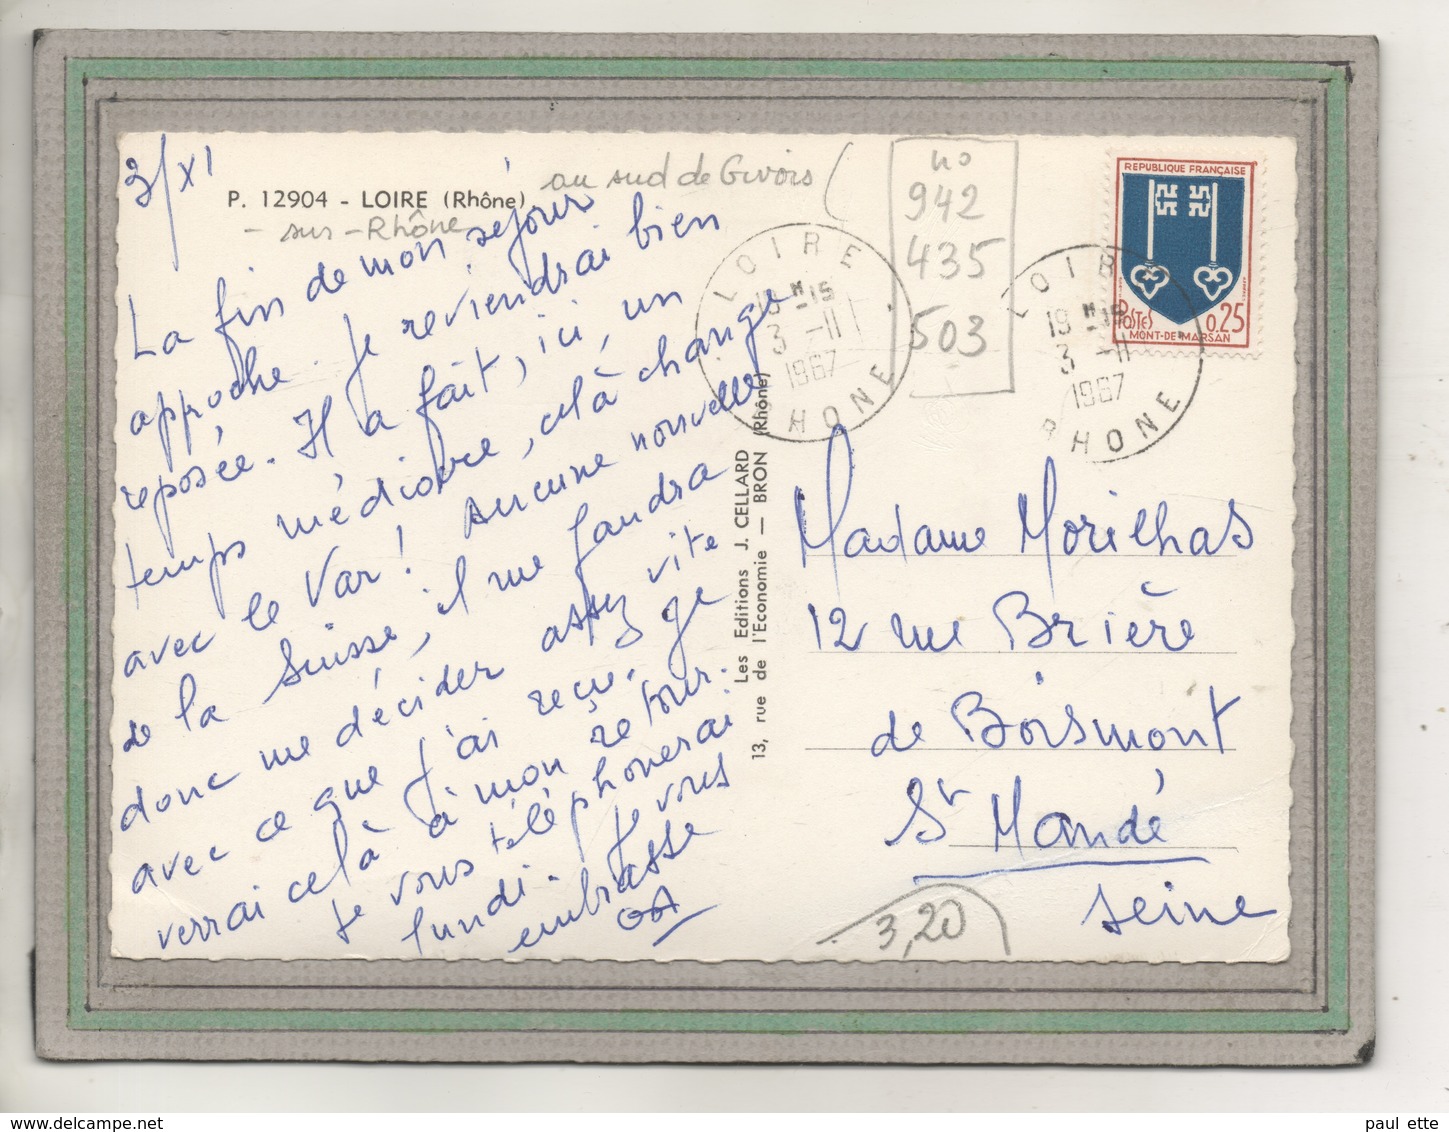 3/XI
P. 12904 - LOIRE (Rhône)
- sur - Rhône
au sud de Givors
La fin de mon séjour
approche. Je reviendrai bien
reposée. Il a fait, ici, un
temps médiocre, celà change
avec le Var ! Aucune nouvelle
de la Suisse, il me faudra
donc me décider assez vite
avec ce que j'ai reçu. Je
verrai celà à mon retour.
Je vous téléphonerai
lundi. Je vous
embrasse
Les Editions J. CELLARD
13, rue de l'Economie — BRON (Rhône)
no
942
435
503
LOIRE
18 H -15
3 -11
1967
RHONE
LOIRE
19 H 15
3 -11
1967
RHONE
REPUBLIQUE FRANÇAISE
POSTES
0,25
MONT-DE-MARSAN
Madame Morilhas
12 rue Brière
de Boismont
St Mandé
Seine
3,20
paul ette